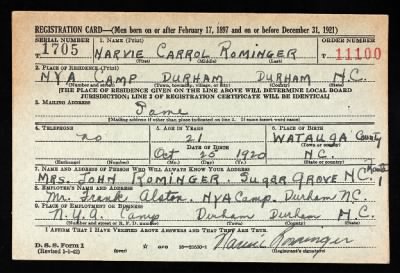 REGISTRATION CARD—(Men born on or after February 17, 1897 and on or before December 31, 1921)
SERIAL NUMBER 1. NAME (Print) ORDER NUMBER
1705 HARVIE CARROL ROMINGER 11100
(First) (Middle) (Last)
2. PLACE OF RESIDENCE (Print)
NYA CAMP DURHAM DURHAM N.C.
(Number and street) (Town, township, village, or city) (County) (State)
[THE PLACE OF RESIDENCE GIVEN ON THE LINE ABOVE WILL DETERMINE LOCAL BOARD
JURISDICTION; LINE 2 OF REGISTRATION CERTIFICATE WILL BE IDENTICAL]
3. MAILING ADDRESS
Same
[Mailing address if other than place indicated on line 2. If same insert word same]
4. TELEPHONE 5. AGE IN YEARS 6. PLACE OF BIRTH
no 21 WATAUGA County
DATE OF BIRTH (Town or county)
Oct 25 1920 N.C.
(Exchange) (Number) (Mo.) (Day) (Yr.) (State or country)
7. NAME AND ADDRESS OF PERSON WHO WILL ALWAYS KNOW YOUR ADDRESS
MRS. JOHN ROMINGER. SUGAR GROVE N.C.
8. EMPLOYER'S NAME AND ADDRESS
Mr. Frank Alston. NYA Camp. Durham N.C.
9. PLACE OF EMPLOYMENT OR BUSINESS
N.Y.A. Camp Durham Durham N.C.
(Number and street or R. F. D. number) (Town) (County) (State)
I AFFIRM THAT I HAVE VERIFIED ABOVE ANSWERS AND THAT THEY ARE TRUE.
D. S. S. Form 1 Harvie Rominger
(Revised 1-1-42) (over) 16—21630-1 (Registrant's signature)